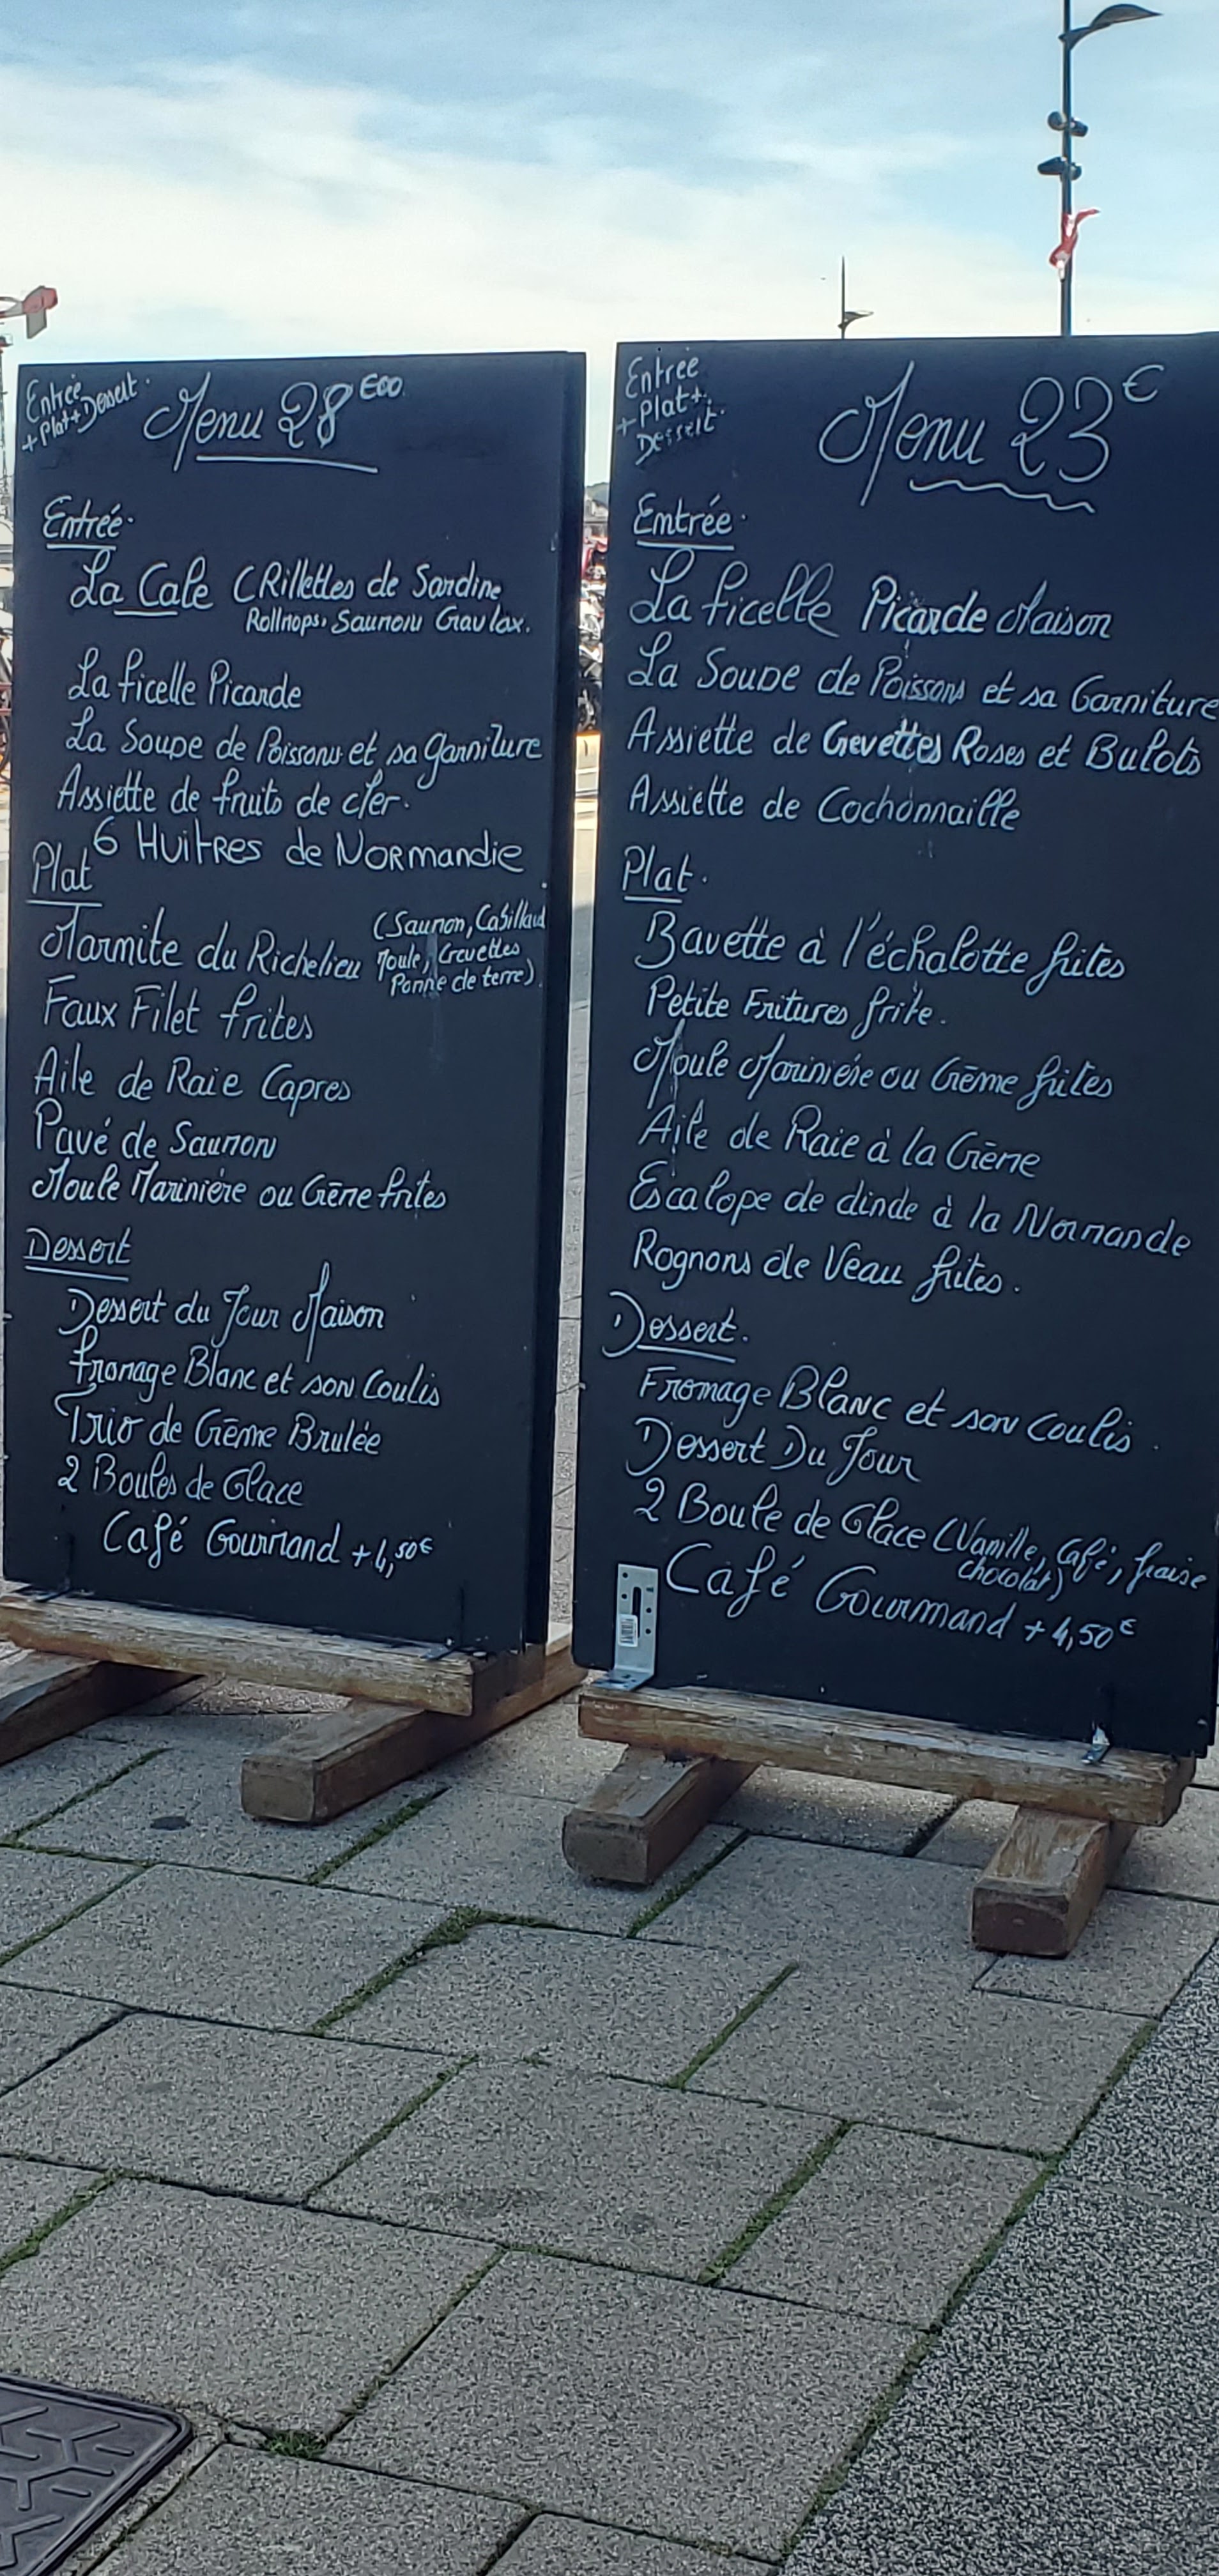 Entrée
+ Plat + Dessert.
Menu 28 €00
Entrée.
La Cale (Rillettes de Sardine
Rollmops, Saumon Gravlax.
La ficelle Picarde
La Soupe de Poissons et sa garniture
Assiette de fruits de Mer.
6 Huitres de Normandie
Plat
Marmite du Richelieu (Saumon, Cabillaud
Moule, Crevettes
Pomme de terre).
Faux Filet frites
Aile de Raie Capres
Pavé de Saumon
Moule Marinière ou Crème frites
Dessert
Dessert du Jour Maison
Fromage Blanc et son Coulis
Trio de Crème Brulée
2 Boules de Glace
Café Gourmand + 4,50€
Entrée
+ Plat +
Dessert.
Menu 23€
Entrée.
La ficelle Picarde Maison
La Soupe de Poissons et sa Garniture
Assiette de Crevettes Roses et Bulots
Assiette de Cochonnaille
Plat.
Bavette à l'échalotte frites
Petite Fritures frite.
Moule Marinière ou Crème frites
Aile de Raie à la Crème
Escalope de dinde à la Normande
Rognons de Veau frites.
Dessert.
Fromage Blanc et son coulis.
Dessert Du Jour
2 Boule de Glace (Vanille, Café, fraise
chocolat)
Café Gourmand + 4,50€